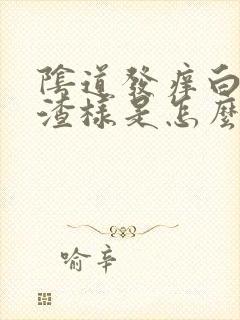 陰道發癢白
渣樣是怎麼
喻辛